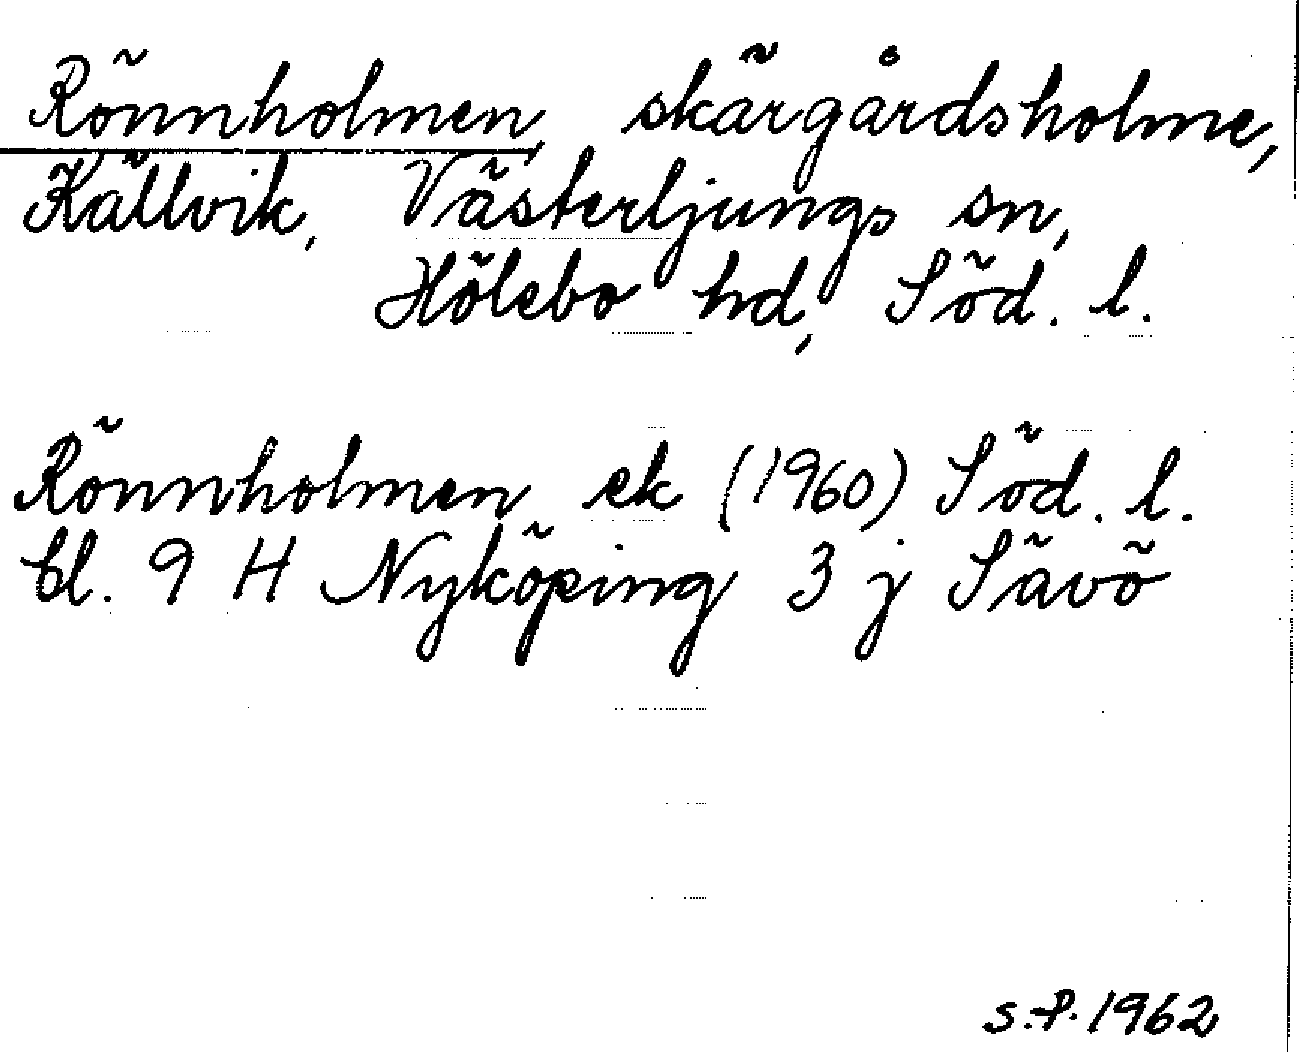 Rönnholmen, skärgårdsholme,
Källvik, Västerljungs sn,
Hölebo hd, Söd. l.
Rönnholmen ek (1960) Söd. l.
bl. 9 H Nyköping 3 j Sävö
S.P. 1962